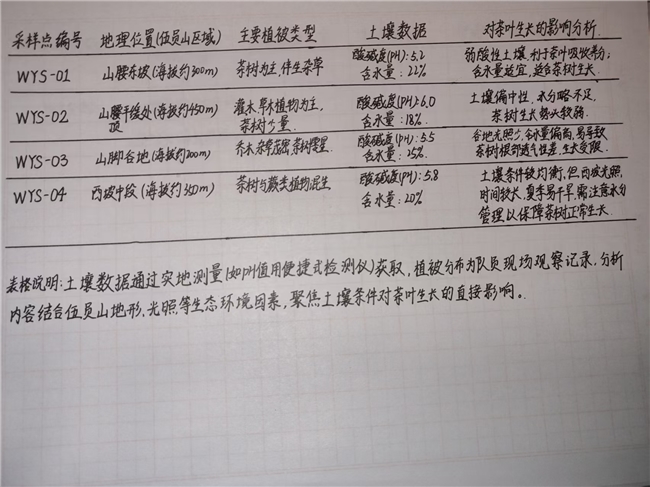 采样点编号 地理位置(伍员山区域) 主要植被类型 土壤数据 对茶叶生长的影响分析
WYS-01 山腰东坡(海拔约300m) 茶树为主,伴生杂草 酸碱度(PH):5.2 弱酸性土壤,利于茶叶吸收养分;
含水量:22% 含水量适宜,适合茶树生长.
WYS-02 山腰平缓处(海拔约450m) 灌木、草木植物为主, 酸碱度(PH):6.0 土壤偏中性,水分略不足,
茶树少量. 含水量:18%. 茶树生长势头较弱.
WYS-03 山脚谷地(海拔约200m) 乔木、杂草茂密,茶树零星. 酸碱度(PH):5.5 谷地光照少,含水量偏高,易导致
含水量:25%. 茶树根部透气性差,生长受限.
WYS-04 西坡中段(海拔约350m) 茶树与蕨类植物混生 酸碱度(PH):5.8 土壤条件较均衡,但西坡光照
含水量:20% 时间较长,夏季易干旱,需注意水分
管理以保障茶树正常生长.
表格说明:土壤数据通过实地测量(如pH值用便捷式检测仪)获取,植被分布为队员现场观察记录,分析
内容结合伍员山地形、光照等生态环境因素,聚焦土壤条件对茶叶生长的直接影响。